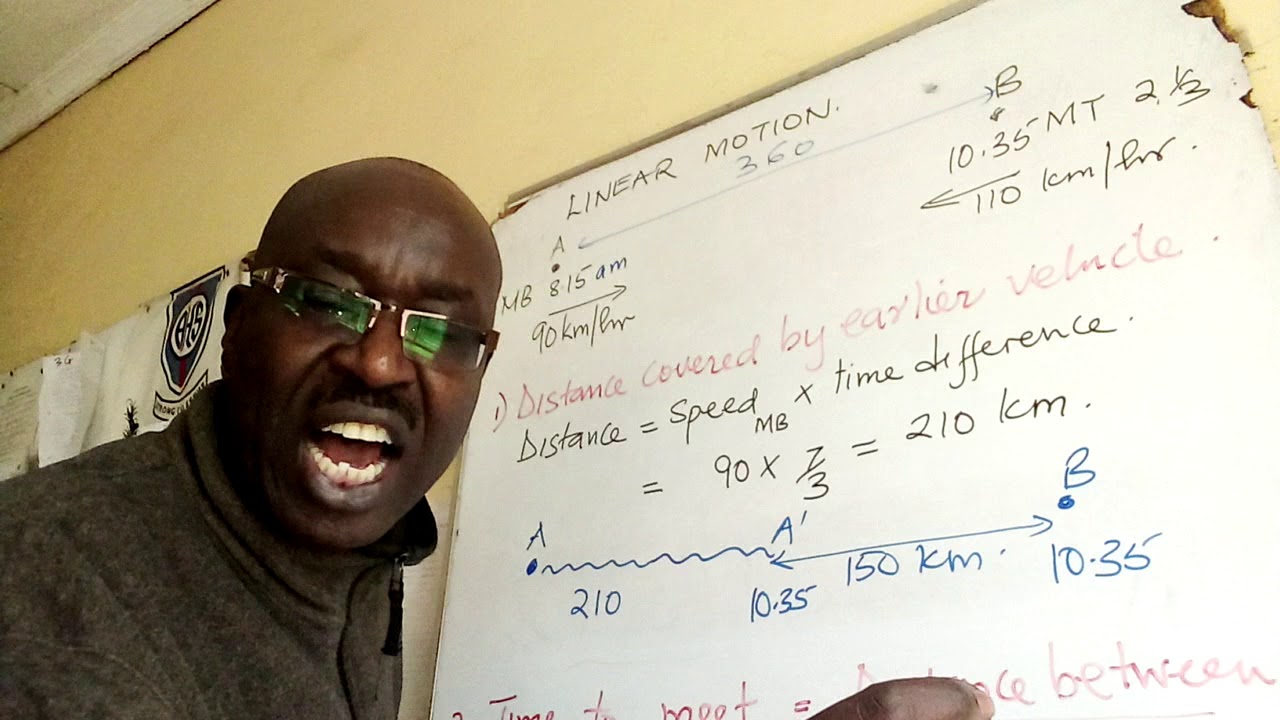 LINEAR MOTION.
360
B
10.35 MT 2 1/3
110 km/hr.
A
MB 8.15am
90km/hr
1) Distance covered by earlier vehicle.
Distance = Speed MB × time difference.
= 90 × 7/3 = 210 km.
A A' 150 km. B
210 10.35 10.35
2. Time to meet = between
3G